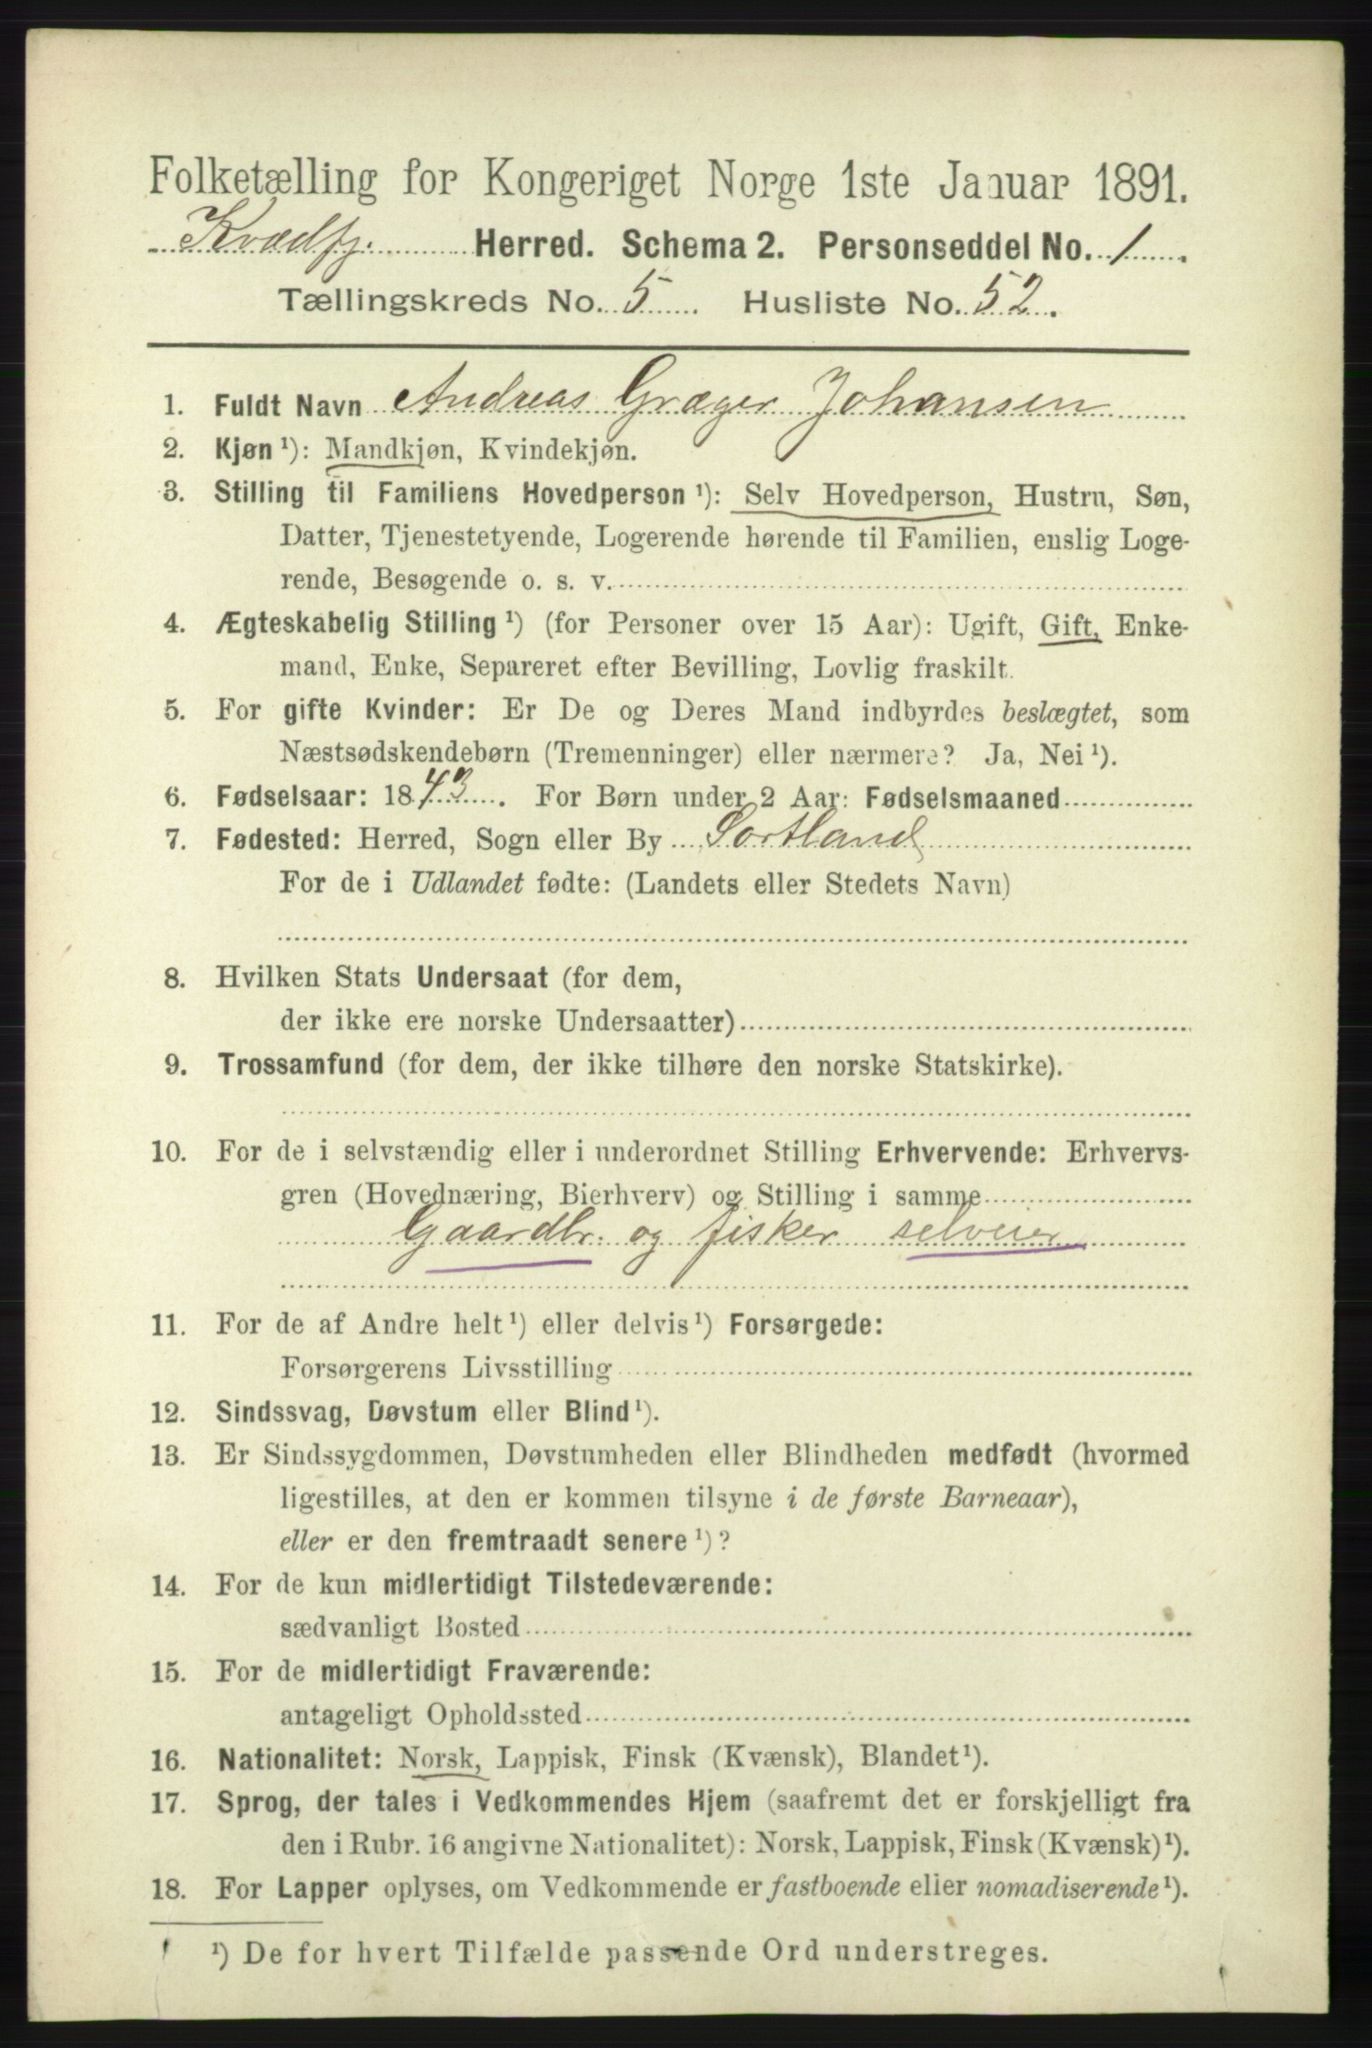 Folketælling for Kongeriget Norge 1ste Januar 1891.
Kvædfj. Herred. Schema 2. Personseddel No. 1.
Tællingskreds No. 5. Husliste No. 52.
1. Fuldt Navn Andreas Græger Johansen
2. Kjøn ¹): Mandkjøn, Kvindekjøn.
3. Stilling til Familiens Hovedperson ¹): Selv Hovedperson, Hustru, Søn,
Datter, Tjenestetyende, Logerende hørende til Familien, enslig Loge-
rende, Besøgende o. s. v.
4. Ægteskabelig Stilling ¹) (for Personer over 15 Aar): Ugift, Gift, Enke-
mand, Enke, Separeret efter Bevilling, Lovlig fraskilt.
5. For gifte Kvinder: Er De og Deres Mand indbyrdes beslægtet, som
Næstsødskendebørn (Tremenninger) eller nærmere? Ja, Nei ¹).
6. Fødselsaar: 1843. For Børn under 2 Aar: Fødselsmaaned
7. Fødested: Herred, Sogn eller By Sortland
For de i Udlandet fødte: (Landets eller Stedets Navn)
8. Hvilken Stats Undersaat (for dem,
der ikke ere norske Undersaatter)
9. Trossamfund (for dem, der ikke tilhøre den norske Statskirke).
10. For de i selvstændig eller i underordnet Stilling Erhvervende: Erhvervs-
gren (Hovednæring, Bierhverv) og Stilling i samme
Gaardbr. og fisker selveier
11. For de af Andre helt ¹) eller delvis ¹) Forsørgede:
Forsørgerens Livsstilling
12. Sindssvag, Døvstum eller Blind ¹).
13. Er Sindssygdommen, Døvstumheden eller Blindheden medfødt (hvormed
ligestilles, at den er kommen tilsyne i de første Barneaar),
eller er den fremtraadt senere ¹)?
14. For de kun midlertidigt Tilstedeværende:
sædvanligt Bosted
15. For de midlertidigt Fraværende:
antageligt Opholdssted
16. Nationalitet: Norsk, Lappisk, Finsk (Kvænsk), Blandet ¹).
17. Sprog, der tales i Vedkommendes Hjem (saafremt det er forskjelligt fra
den i Rubr. 16 angivne Nationalitet): Norsk, Lappisk, Finsk (Kvænsk) ¹).
18. For Lapper oplyses, om Vedkommende er fastboende eller nomadiserende ¹).
¹) De for hvert Tilfælde passende Ord understreges.